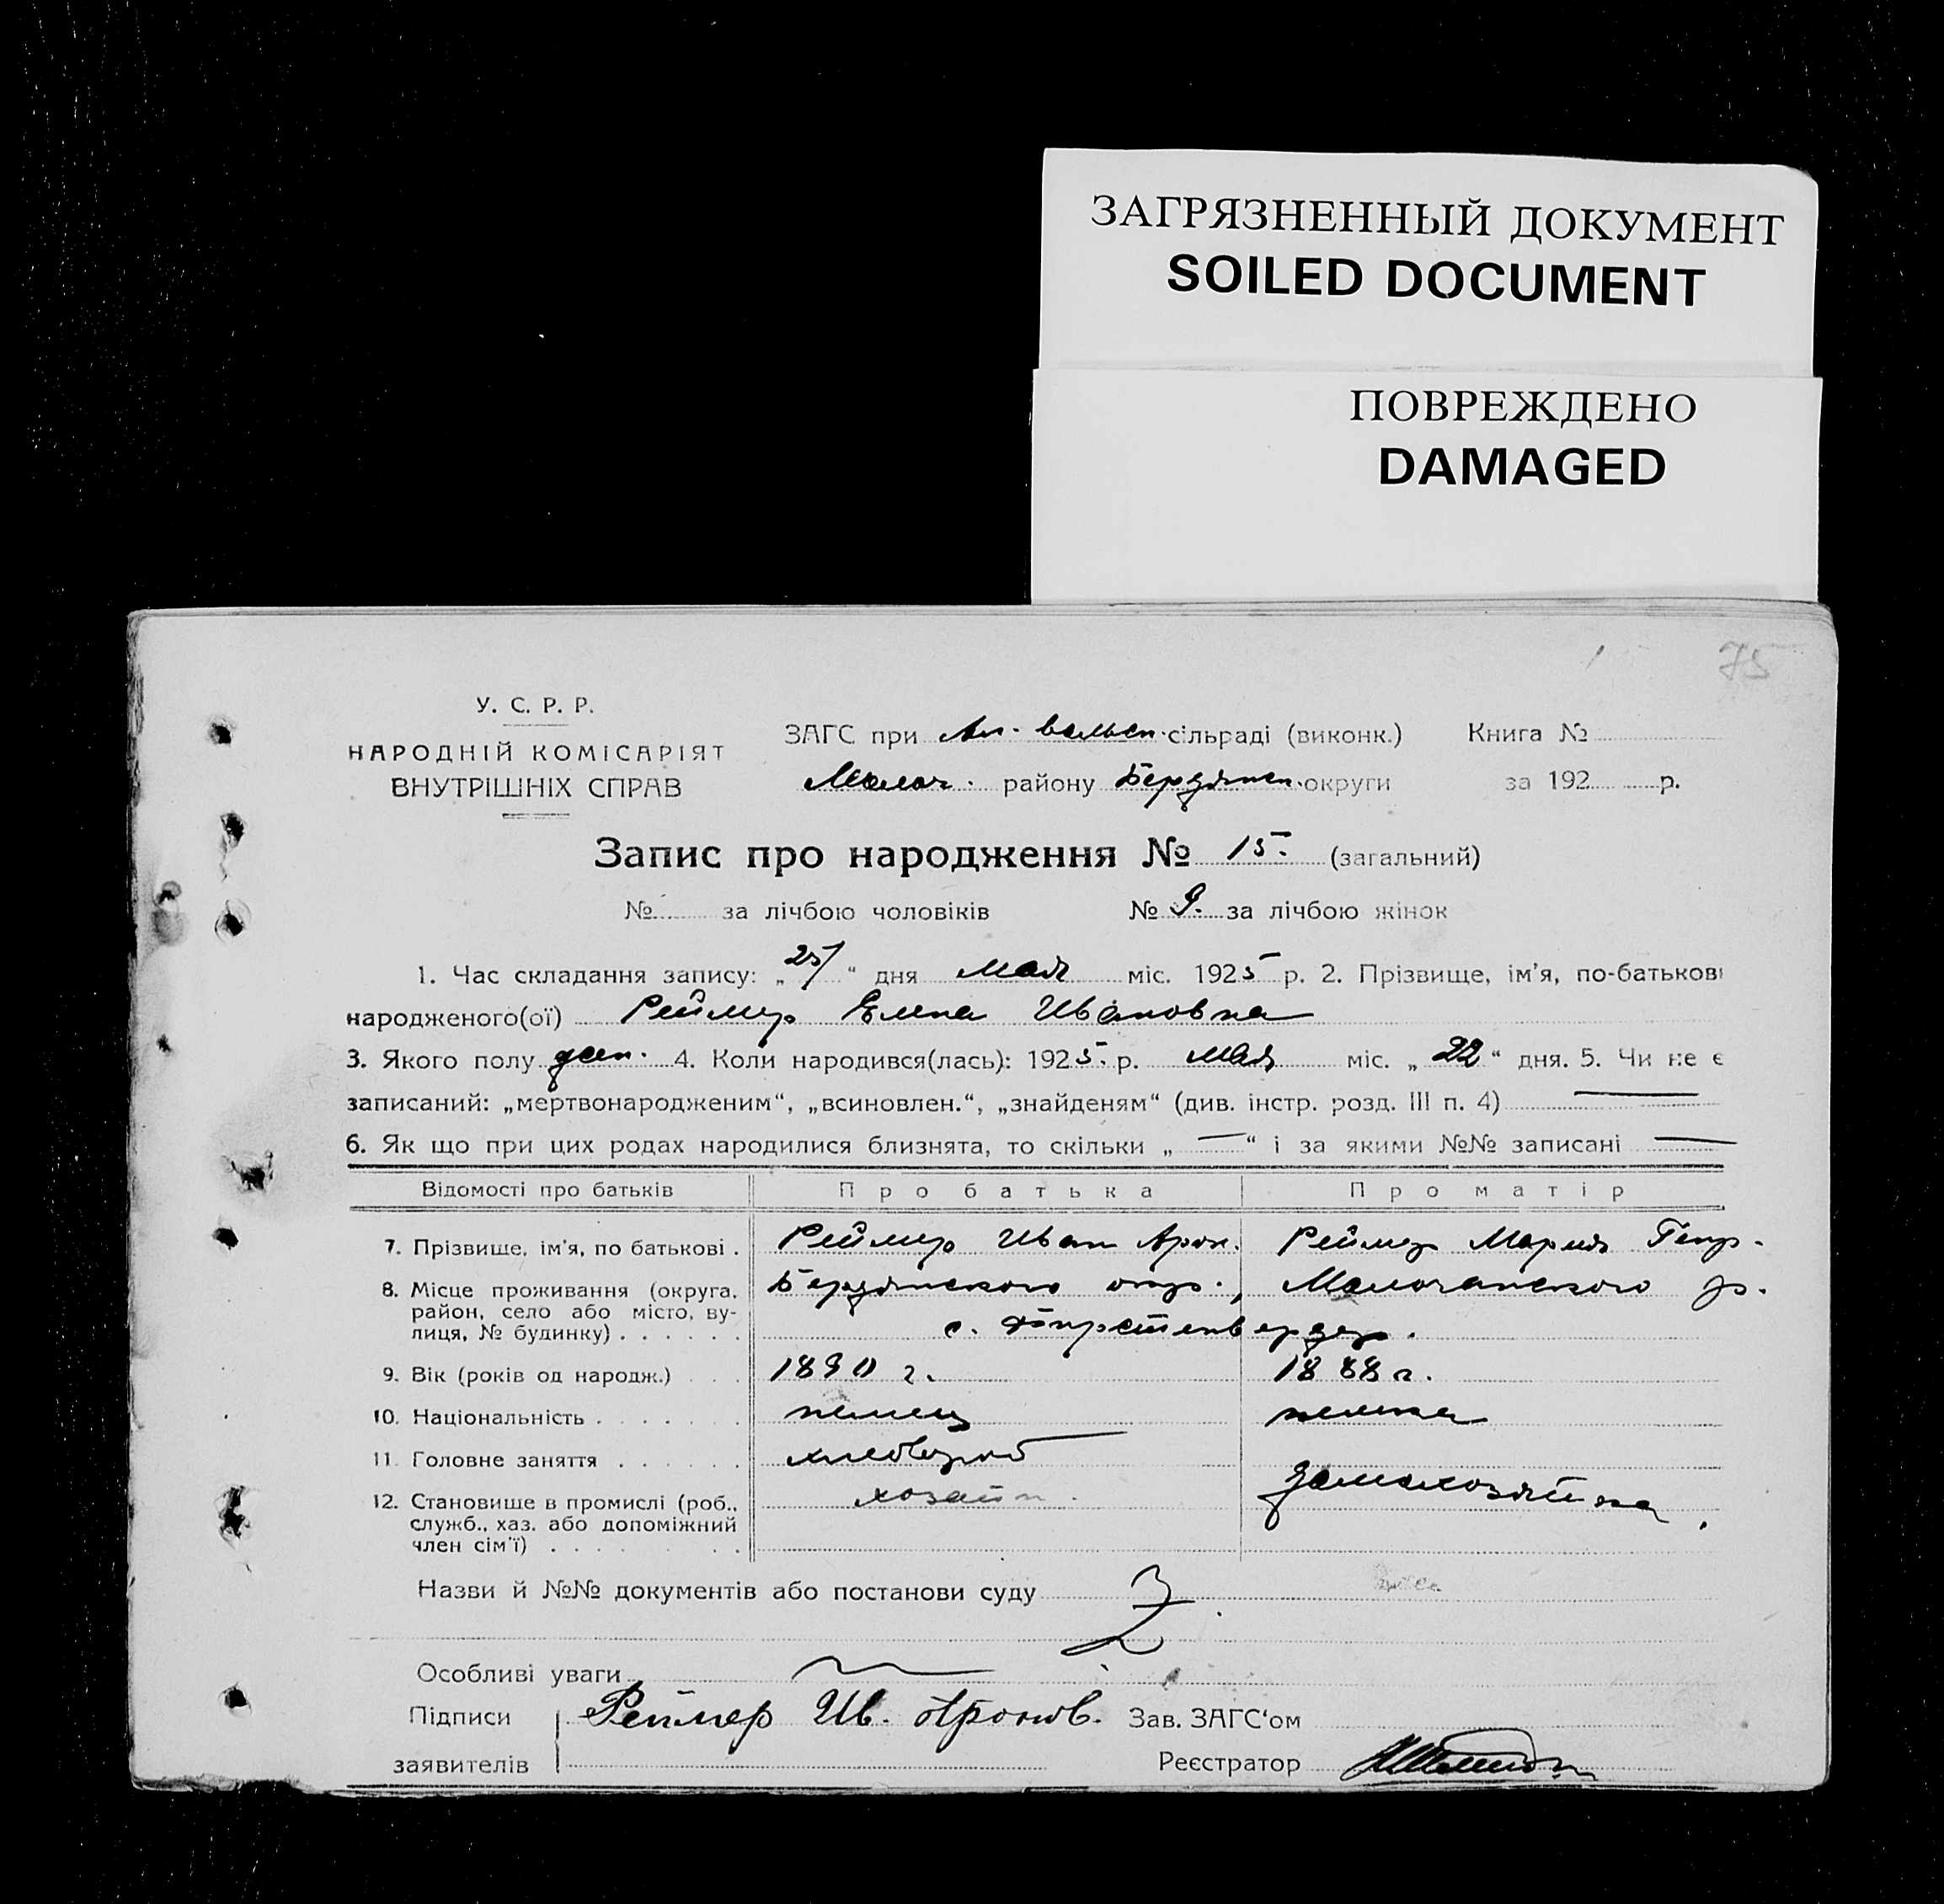 ЗАГРЯЗНЕННЫЙ ДОКУМЕНТ
SOILED DOCUMENT
ПОВРЕЖДЕНО
DAMAGED
75
У. С. Р. Р.
НАРОДНІЙ КОМІСАРІЯТ
ВНУТРІШНІХ СПРАВ
ЗАГС при Ал- вальсп. сільраді (виконк.) Книга №
Молоч. району Бердянск. округи за 192 р.
Запис про народження № 15. (загальний)
№ за лічбою чоловіків № 9. за лічбою жінок
1. Час складання запису: „25/“ дня мая міс. 1925 р. 2. Прізвище, ім'я, по-батькові
народженого(ої) Реймер Елена Ивановна
3. Якого полу жен. 4. Коли народився(лась): 1925. р. мая міс. „22“ дня. 5. Чи не є
записаний: „мертвонародженим“, „всиновлен.“, „знайденям“ (див. інстр. розд. III п. 4) —
6. Як що при цих родах народилися близнята, то скільки „—“ і за якими №№ записані —
Відомості про батьків Про батька Про матір
7. Прізвище, ім'я, по батькові . Реймер Иван Арон. Реймер Мария Генр.
8. Місце проживання (округа, район, село або місто, вулиця, № будинку) . . . . . . Бердянского окр., Молочанского р.
с. Фирстенвердер.
9. Вік (років од народж.) . . . 1890 г. 1888 г.
10. Національність . . . . . . . немец немка
11. Головне заняття . . . . . . хлебороб
12. Становище в промислі (роб., служб., хаз. або допоміжний член сім'ї) . . . . . . . хозяин. домахозяйка.
Назви й №№ документів або постанови суду
Особливі уваги
Підписи Реймер Ив. Аронов. Зав. ЗАГС'ом
заявителів Реєстратор